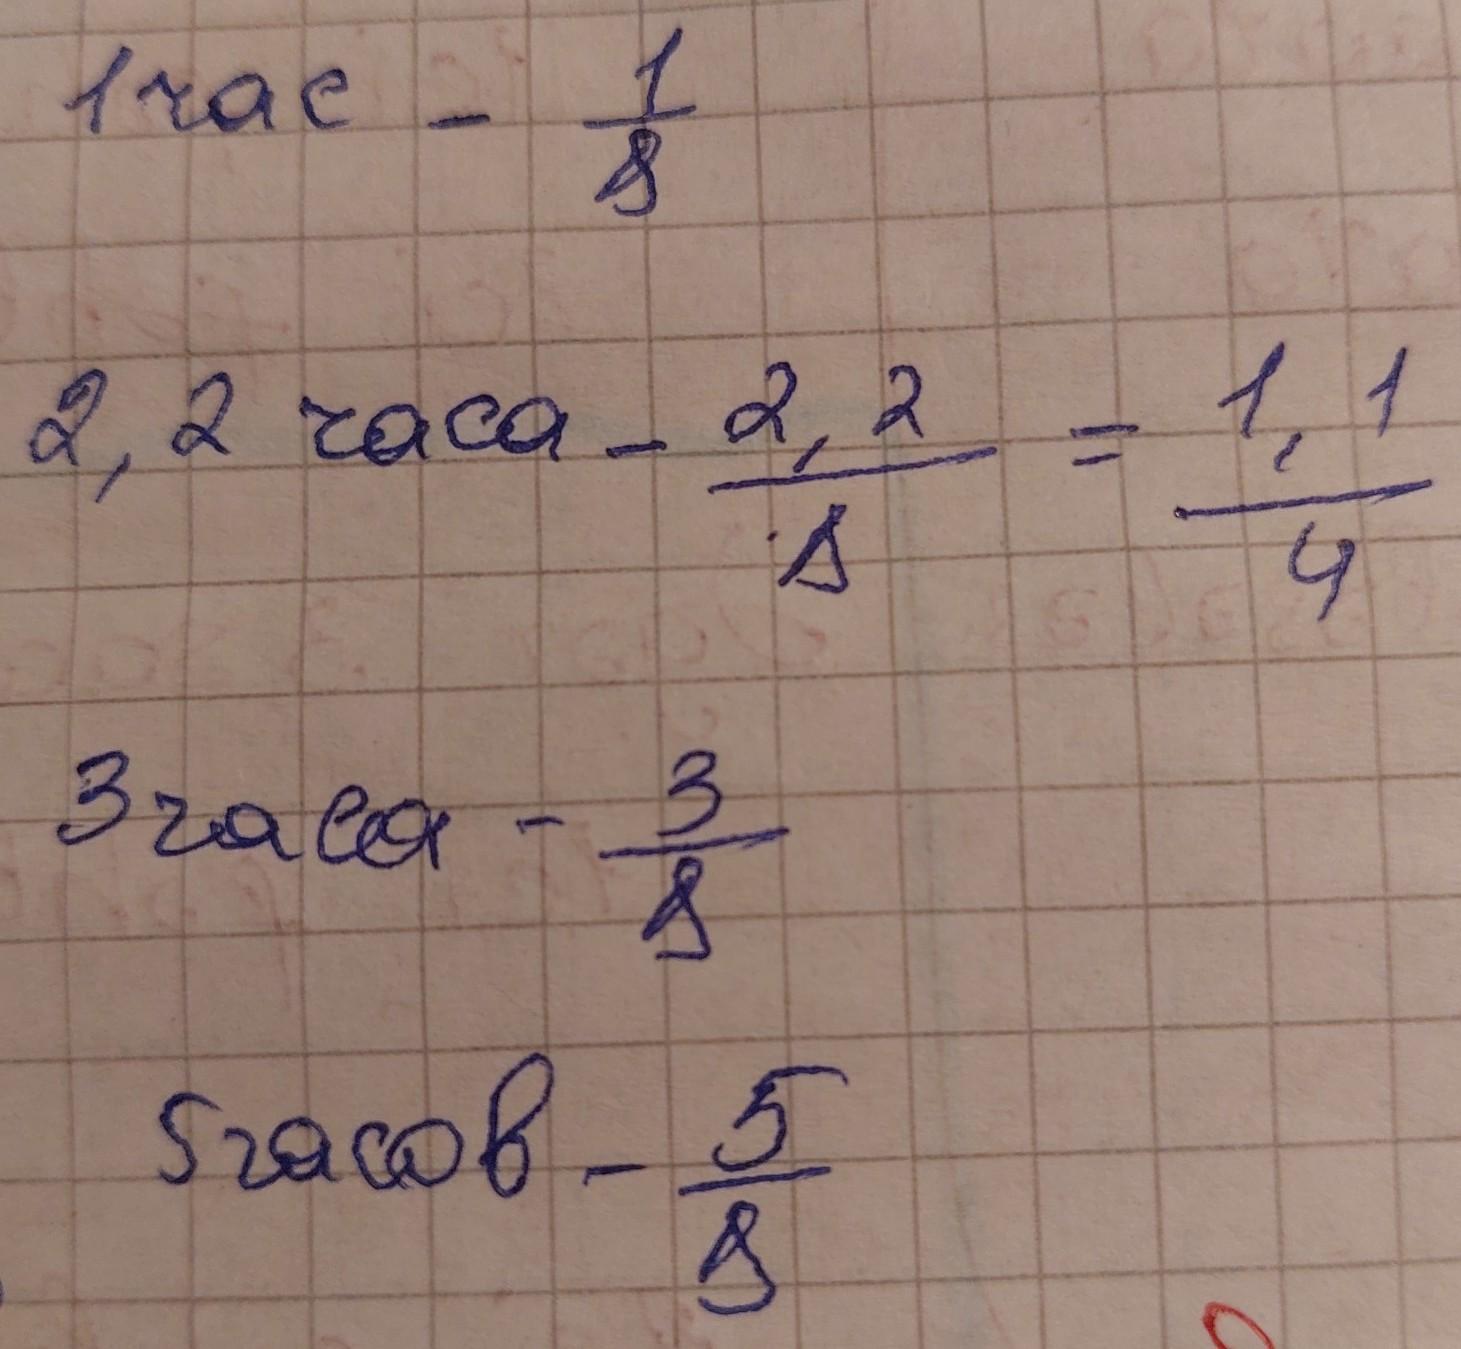 1 час - 1/8
2,2 часа - 2,2/8 = 1,1/4
3 часа - 3/8
5 часов - 5/8